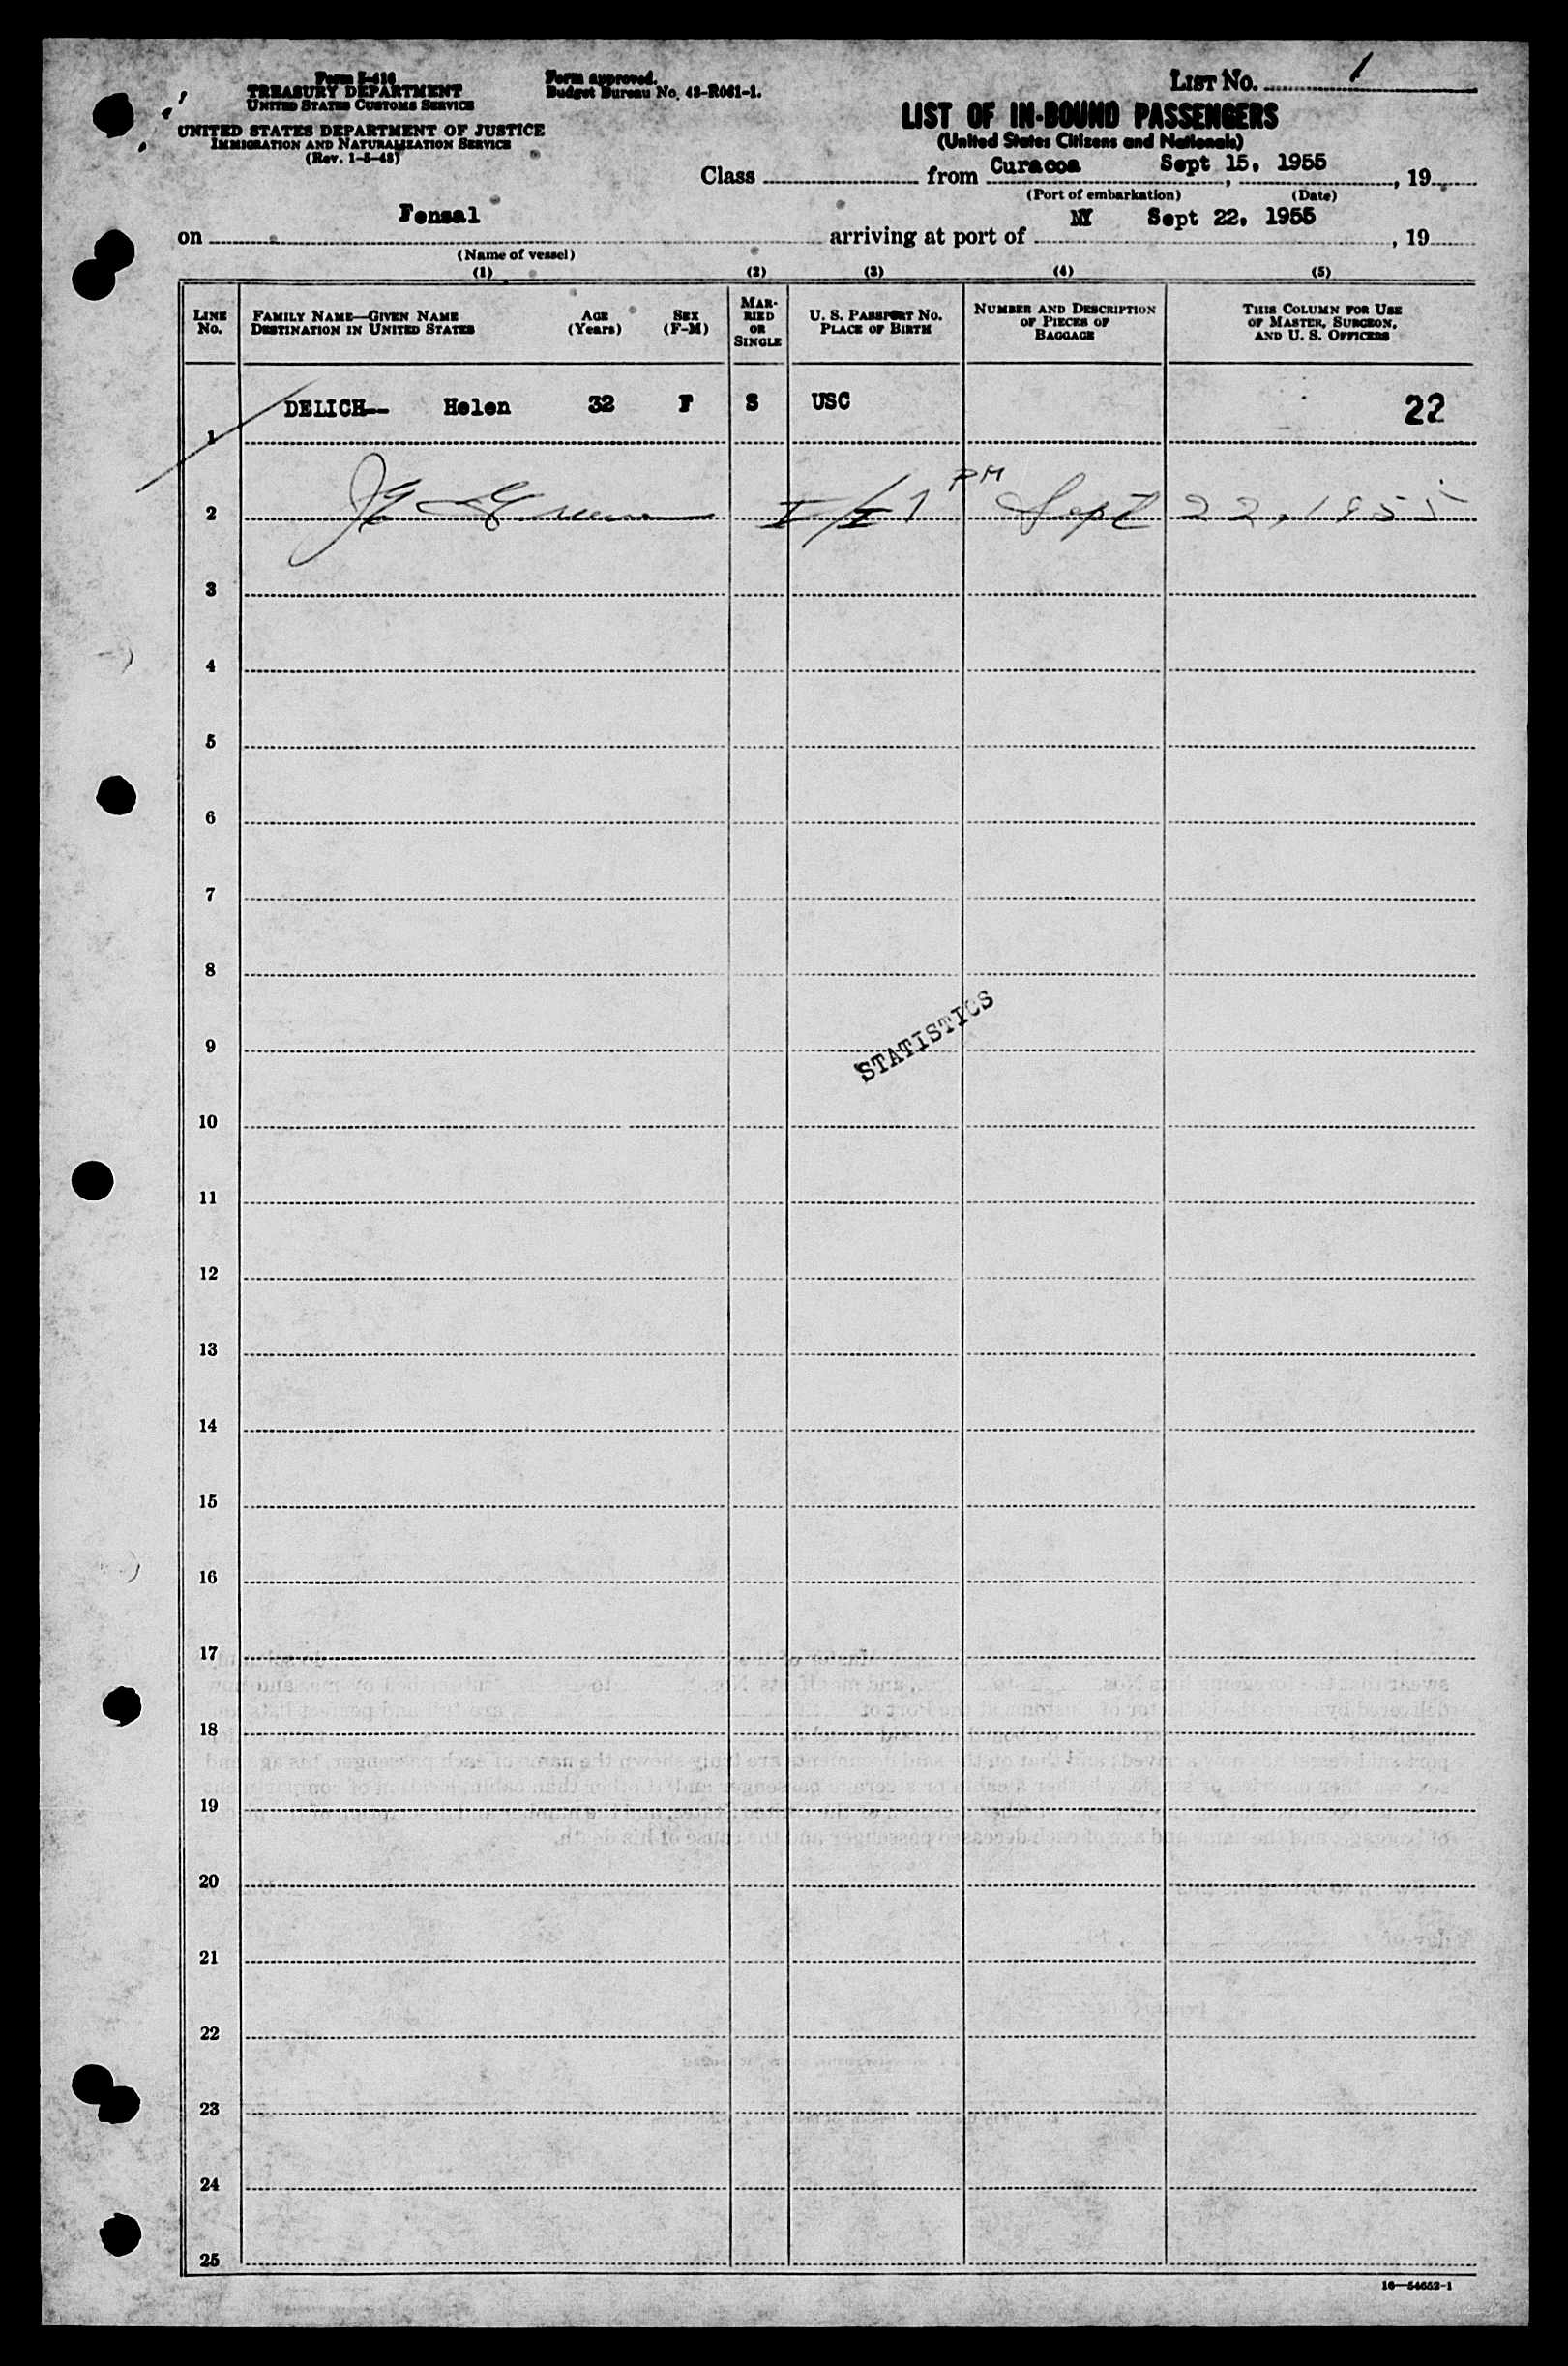 Form I-416
TREASURY DEPARTMENT
UNITED STATES CUSTOMS SERVICE
UNITED STATES DEPARTMENT OF JUSTICE
IMMIGRATION AND NATURALIZATION SERVICE
(Rev. 1-5-48)
Form approved.
Budget Bureau No. 43-R061-1.
LIST No. 1
LIST OF IN-BOUND PASSENGERS
(United States Citizens and Nationals)
Class from Curacoa Sept 15, 1955, 19
(Port of embarkation) (Date)
on Fensal arriving at port of NY Sept 22, 1955, 19
(Name of vessel)
(1) (2) (3) (4) (5)
LINE No. FAMILY NAME—GIVEN NAME DESTINATION IN UNITED STATES AGE (Years) SEX (F-M) MARRIED OR SINGLE U. S. PASSPORT No. PLACE OF BIRTH NUMBER AND DESCRIPTION OF PIECES OF BAGGAGE THIS COLUMN FOR USE OF MASTER, SURGEON, AND U. S. OFFICERS
1 DELICH-- Helen 32 F S USC 22
2 I/I 1 PM Sept 22, 1955
3
4
5
6
7
8
STATISTICS
9
10
11
12
13
14
15
16
17
18
19
20
21
22
23
24
25
16—54652-1